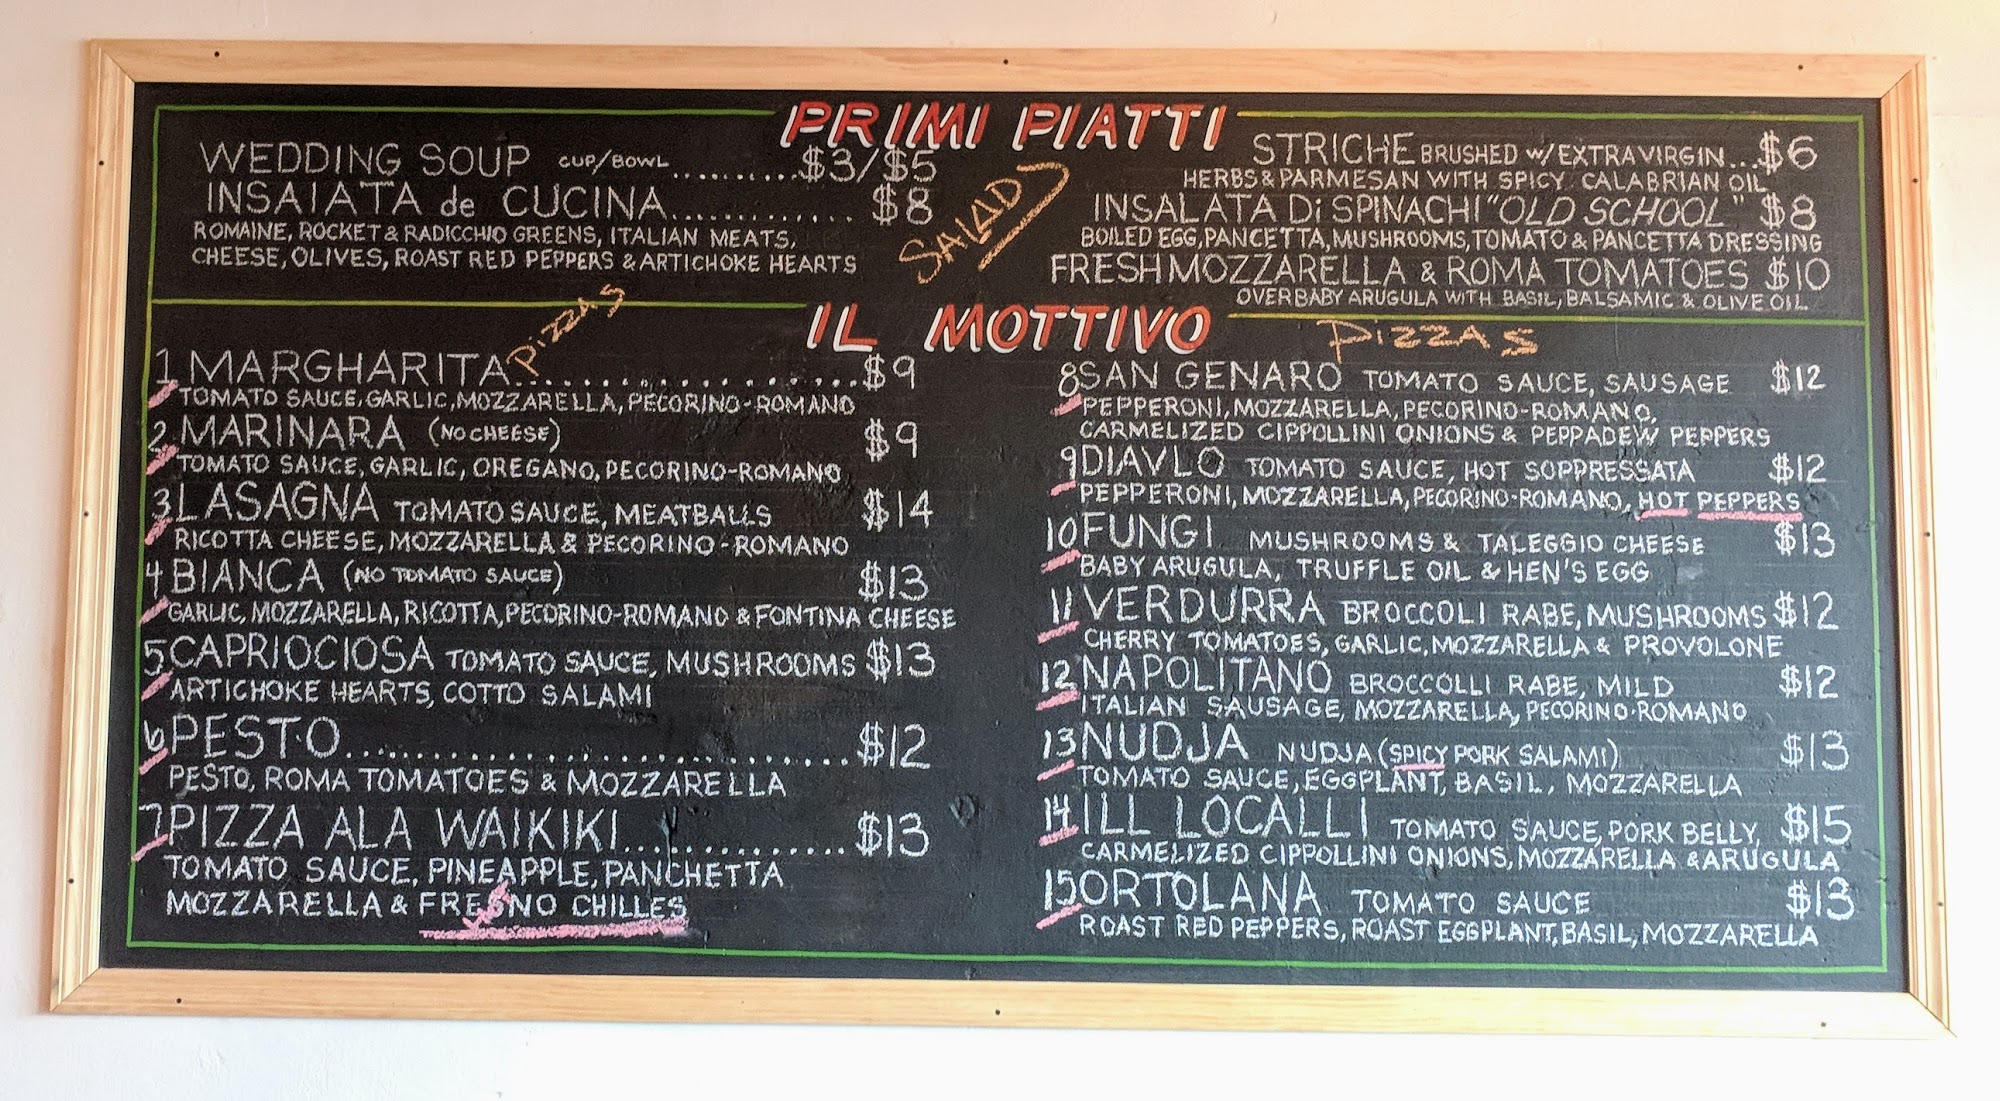 PRIMI PIATTI
WEDDING SOUP CUP/BOWL ..........$3/$5
INSAlATA de CUCINA............. $8
ROMAINE, ROCKET & RADICCHIO GREENS, ITALIAN MEATS,
CHEESE, OLIVES, ROAST RED PEPPERS & ARTICHOKE HEARTS
SALAD
STRICHE BRUSHED W/EXTRAVIRGIN...$6
HERBS & PARMESAN WITH SPICY CALABRIAN OIL
INSALATA Di SPINACHI "OLD SCHOOL" $8
BOILED EGG, PANCETTA, MUSHROOMS, TOMATO & PANCETTA DRESSING
FRESH MOZZARELLA & ROMA TOMATOES $10
OVER BABY ARUGULA WITH BASIL, BALSAMIC & OLIVE OIL
IL MOTTIVO
PIZZAS
PIZZAS
1 MARGHARITA....................$9
TOMATO SAUCE, GARLIC, MOZZARELLA, PECORINO-ROMANO
2 MARINARA (NO CHEESE) $9
TOMATO SAUCE, GARLIC, OREGANO, PECORINO-ROMANO
3 LASAGNA TOMATO SAUCE, MEATBALLS $14
RICOTTA CHEESE, MOZZARELLA & PECORINO-ROMANO
4 BIANCA (NO TOMATO SAUCE) $13
GARLIC, MOZZARELLA, RICOTTA, PECORINO-ROMANO & FONTINA CHEESE
5 CAPRIOCIOSA TOMATO SAUCE, MUSHROOMS $13
ARTICHOKE HEARTS, COTTO SALAMI
6 PESTO............................$12
PESTO, ROMA TOMATOES & MOZZARELLA
7 PIZZA ALA WAIKIKI.............$13
TOMATO SAUCE, PINEAPPLE, PANCHETTA
MOZZARELLA & FRESNO CHILLES
8 SAN GENARO TOMATO SAUCE, SAUSAGE $12
PEPPERONI, MOZZARELLA, PECORINO-ROMANO,
CARMELIZED CIPPOLLINI ONIONS & PEPPADEW PEPPERS
9 DIAVLO TOMATO SAUCE, HOT SOPPRESSATA $12
PEPPERONI, MOZZARELLA, PECORINO-ROMANO, HOT PEPPERS
10 FUNGI MUSHROOMS & TALEGGIO CHEESE $13
BABY ARUGULA, TRUFFLE OIL & HEN'S EGG
11 VERDURRA BROCCOLI RABE, MUSHROOMS $12
CHERRY TOMATOES, GARLIC, MOZZARELLA & PROVOLONE
12 NAPOLITANO BROCCOLLI RABE, MILD $12
ITALIAN SAUSAGE, MOZZARELLA, PECORINO-ROMANO
13 NUDJA NUDJA (SPICY PORK SALAMI) $13
TOMATO SAUCE, EGGPLANT, BASIL, MOZZARELLA
14 ILL LOCALLI TOMATO SAUCE, PORK BELLY, $15
CARMELIZED CIPPOLLINI ONIONS, MOZZARELLA & ARUGULA
15 ORTOLANA TOMATO SAUCE $13
ROAST RED PEPPERS, ROAST EGGPLANT, BASIL, MOZZARELLA